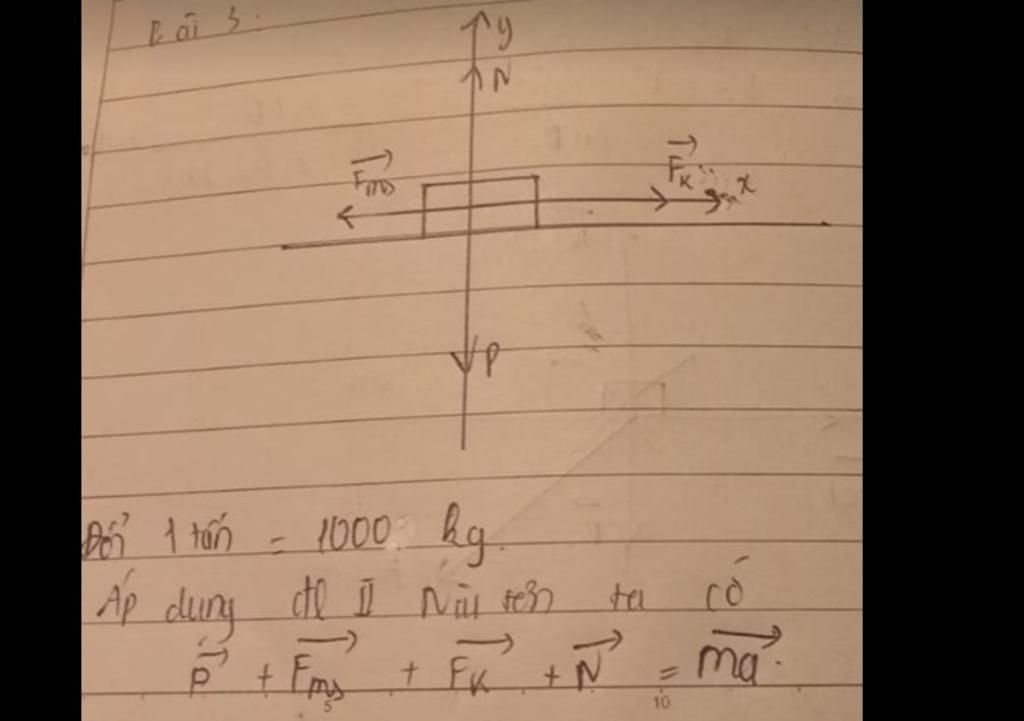 Bài 3.
y
N
Fms
Fk
x
P
Đổi 1 tấn = 1000 kg.
Áp dụng đl II Niu tơn ta có
P + Fms + Fk + N = ma.
5 10